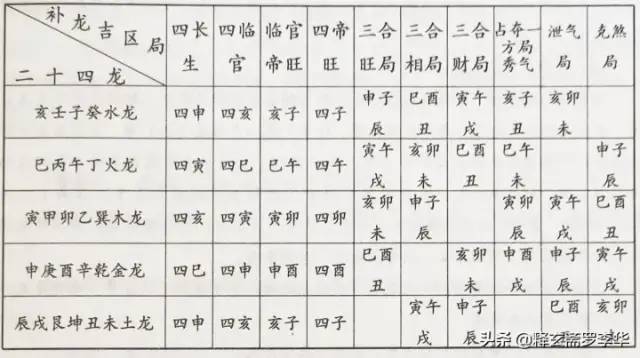 补龙吉区局
二十四龙
四长生 四临官 临官帝旺 四帝旺 三合旺局 三合相局 三合财局 占夺一方局秀气 泄气局 克煞局
亥壬子癸水龙 四申 四亥 亥子 四子 申子辰 巳酉丑 寅午戌 亥子丑 亥卯未
巳丙午丁火龙 四寅 四巳 巳午 四午 寅午戌 亥卯未 巳酉丑 巳午未 申子辰
寅甲卯乙巽木龙 四亥 四寅 寅卯 四卯 亥卯未 申子辰 寅卯辰 寅午戌 巳酉丑
申庚酉辛乾金龙 四巳 四申 申酉 四酉 巳酉丑 亥卯未 申酉戌 申子辰 寅午戌
辰戌艮坤丑未土龙 四申 四亥 亥子 四子 寅午戌 申子辰 巳酉丑 亥卯
头条